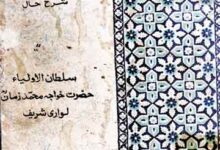 شرح حال
سلطان الاولیاء
حضرت خواجہ محمد زمانؒ
لواری شریف